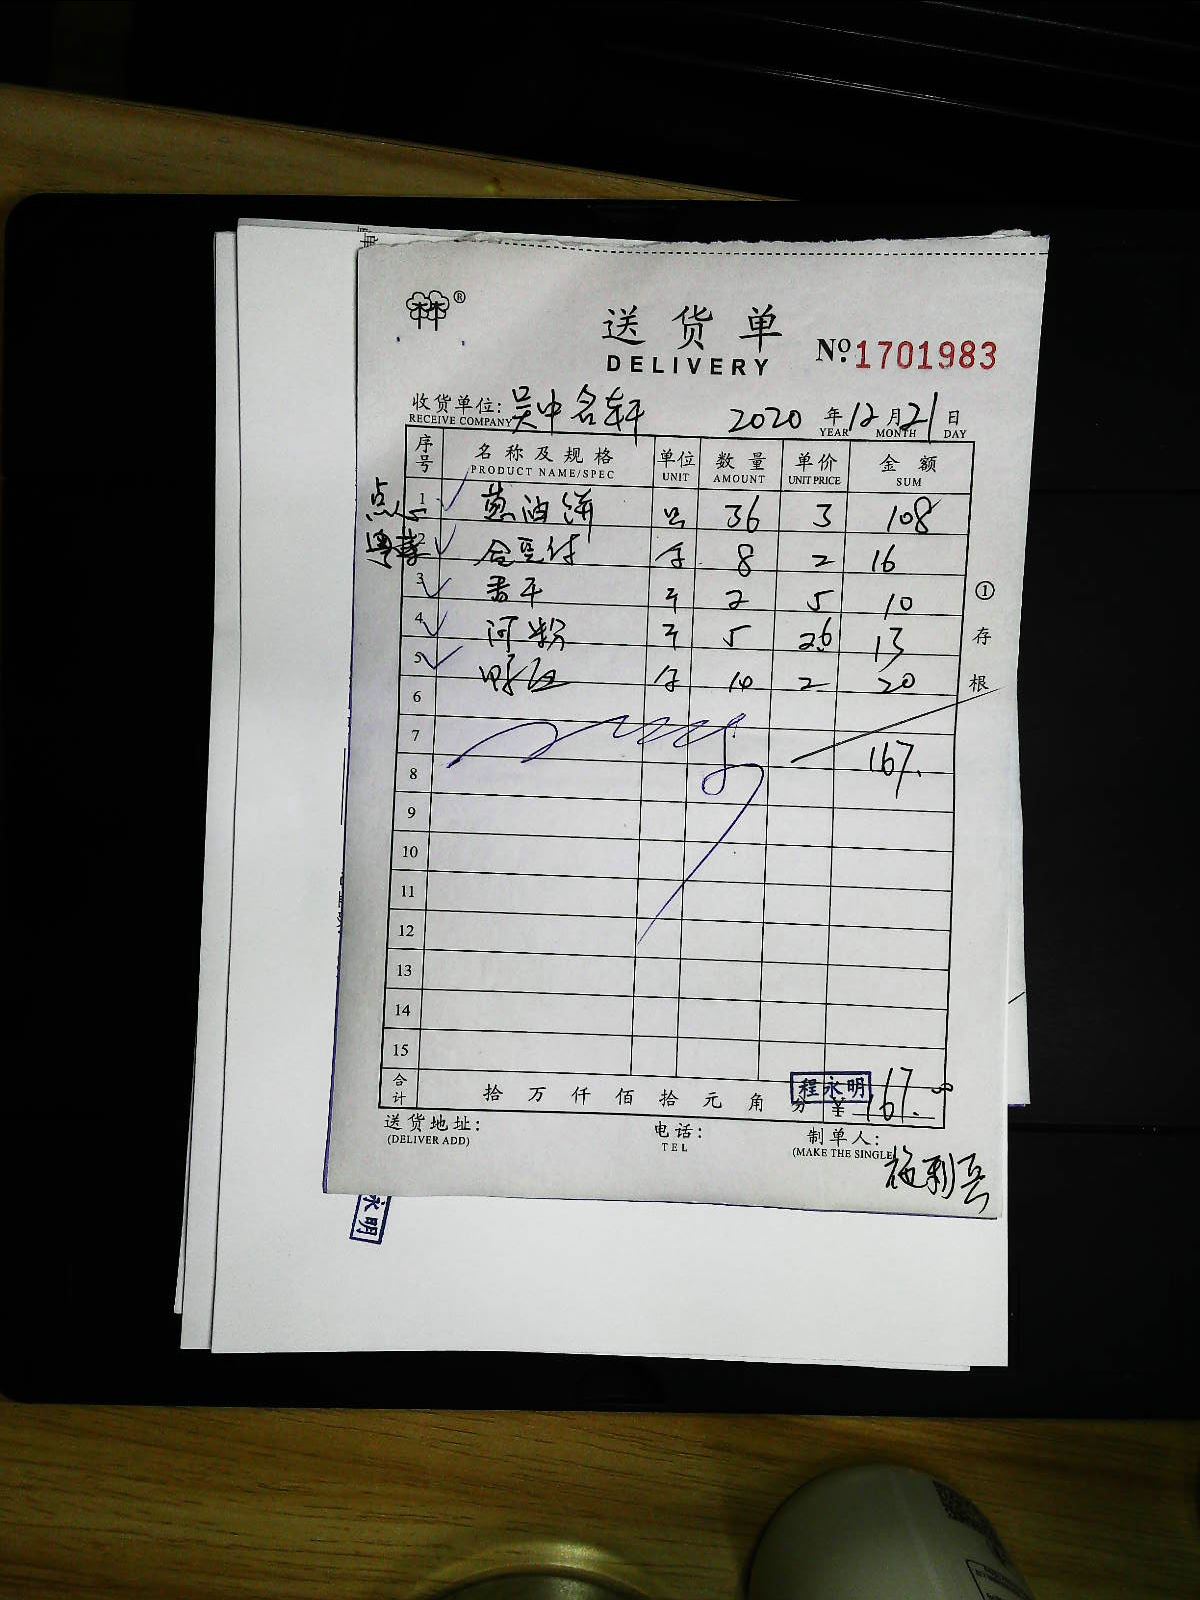 林®
送货单
DELIVERY
№ 1701983
收货单位: 吴中名轩 2020 年 12 月 21 日
RECEIVE COMPANY YEAR MONTH DAY
序号 名称及规格 单位 数量 单价 金额
PRODUCT NAME/SPEC UNIT AMOUNT UNIT PRICE SUM
点心 1 葱油饼 36 3 108
粤菜 2 8 2 16
3 香干 2 5 10
4 河粉 5 2.6 13
5 10 2 20
6
7 167.
8
9
10
11
12
13
14
15
合计 拾 万 仟 佰 拾 元 角 分 ¥ 167.
程永明
送货地址: 电话: 制单人:
(DELIVER ADD) TEL (MAKE THE SINGLE
①存根
永明